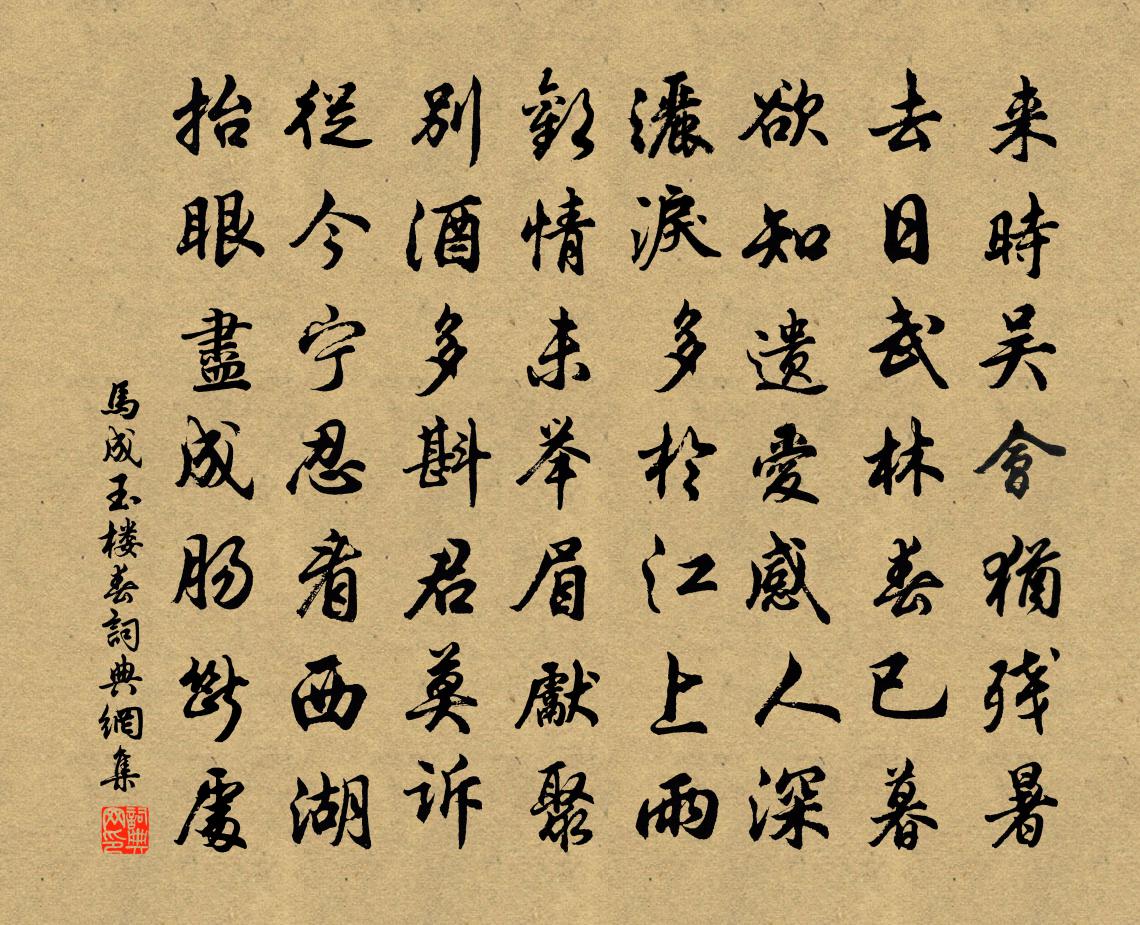 来時吴會猶残暑
去日武林春已暮
欲知遺愛感人深
灑淚多於江上雨
歡情未举眉獻聚
別酒多斟君莫訴
從今宁忍看西湖
抬眼盡成肠斷處
馬成玉楼春詞典網集
詞典网印